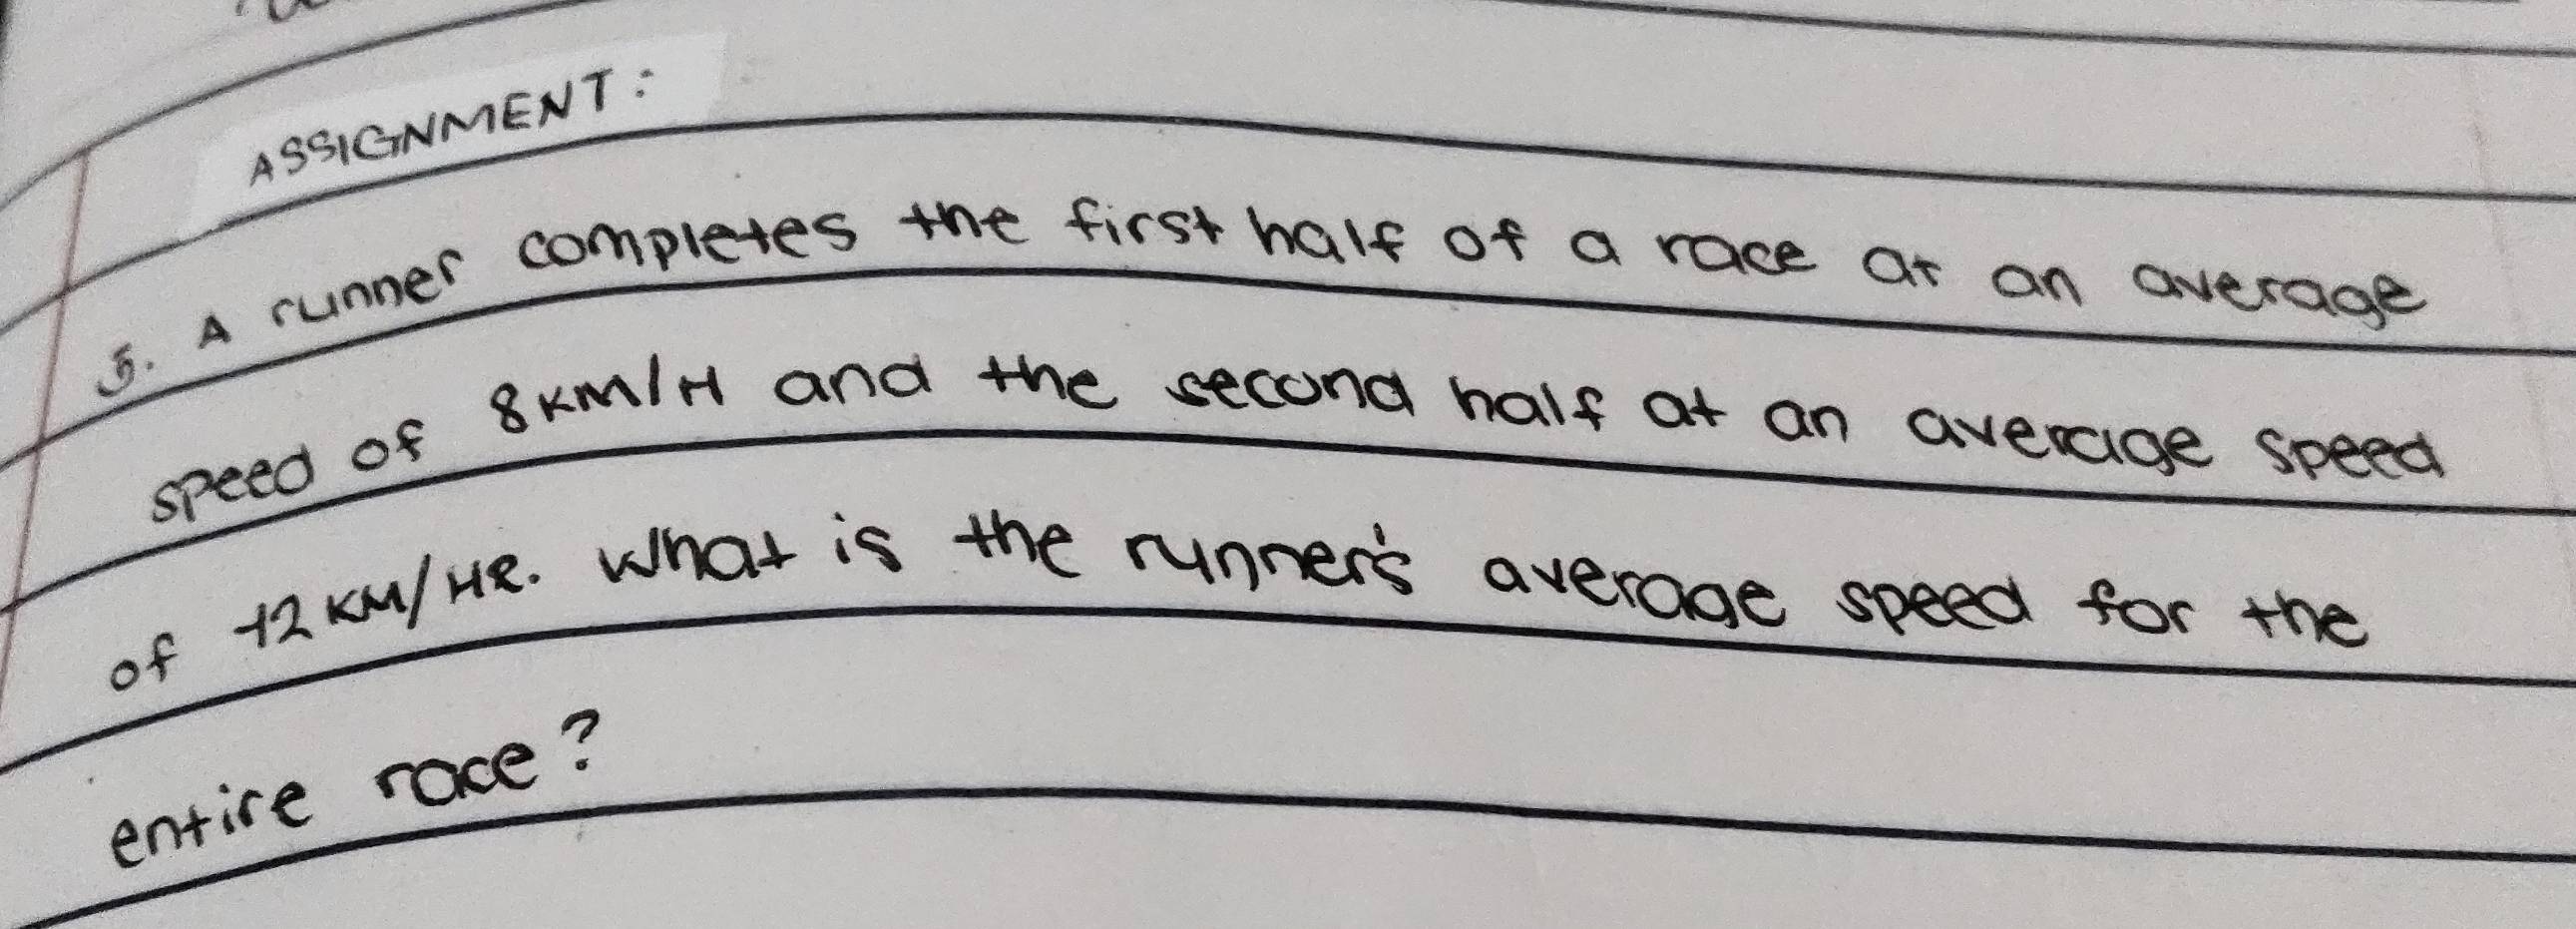 ASSIGNMENT:
5. A runner completes the first half of a race at an average
speed of 8KM/H and the second half at an average speed
of 12 KM/HR. What is the runner's average speed for the
entire race?